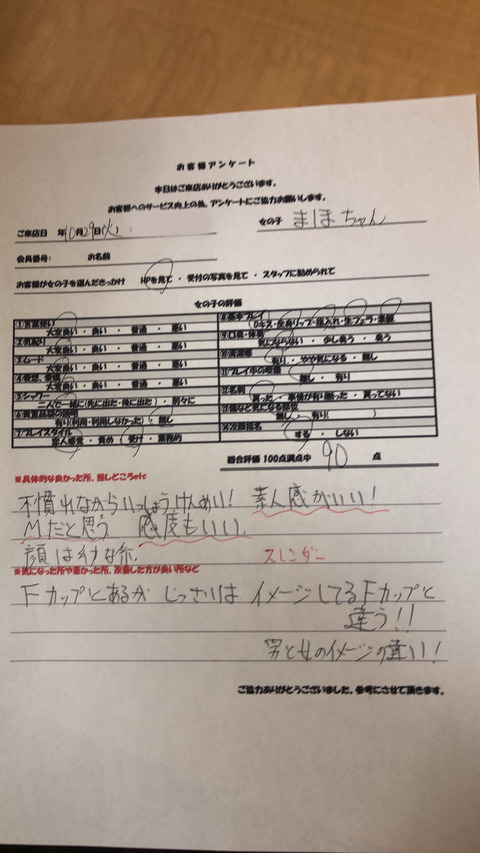 お客様アンケート
本日はご来店ありがとうございます。
お客様へのサービス向上の為、アンケートにご協力お願いします。
ご来店日 年10月29日(火) 女の子 まほちゃん
会員番号: お名前
お客様が女の子を選んだきっかけ HPを見て ・ 受付の写真を見て ・ スタッフに勧められて
女の子の評価
①言葉使い
大変良い・良い ・ 普通 ・ 悪い
②気配り
大変良い・良い ・ 普通 ・ 悪い
③ムード
大変良い・良い ・ 普通 ・ 悪い
大変良い・良い ・ 普通 ・ 悪い
⑤シャワー
二人で一緒に(先に出た・後に出た)・別々に
有り(利用・利用しなかった)・無し
⑦プレイスタイル
恋人感覚・責め・受け・業務的
気にならない ・ 少し臭う ・ 臭う
有り・やや気になる・無し
無し ・ 有り
⑫名刺
貰った・事情が有り断った・貰ってない
無し ・ 有り( )
⑭次回指名
する ・ しない
総合評価 100点満点中 90 点
※具体的な良かった所、推しどころetc
不慣れながらいっしょうけんめい! 素人感がいい!
Mだと思う 感度もいい.
スレンダー
※気になった所や悪かった所、改善した方が良い所など
Fカップとあるが じっさいは イメージしてるFカップと
違う!!
男と女のイメージの違い!
ご協力ありがとうございました。参考にさせて頂きます。